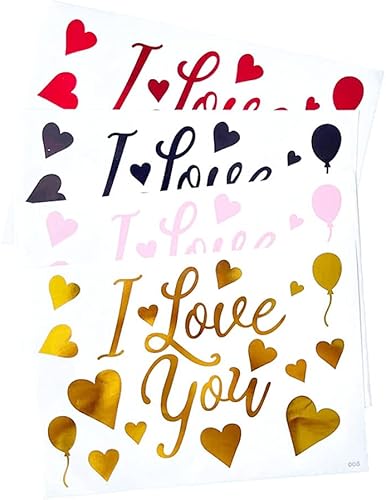 I Love
I Love
I Love
I Love
You
003